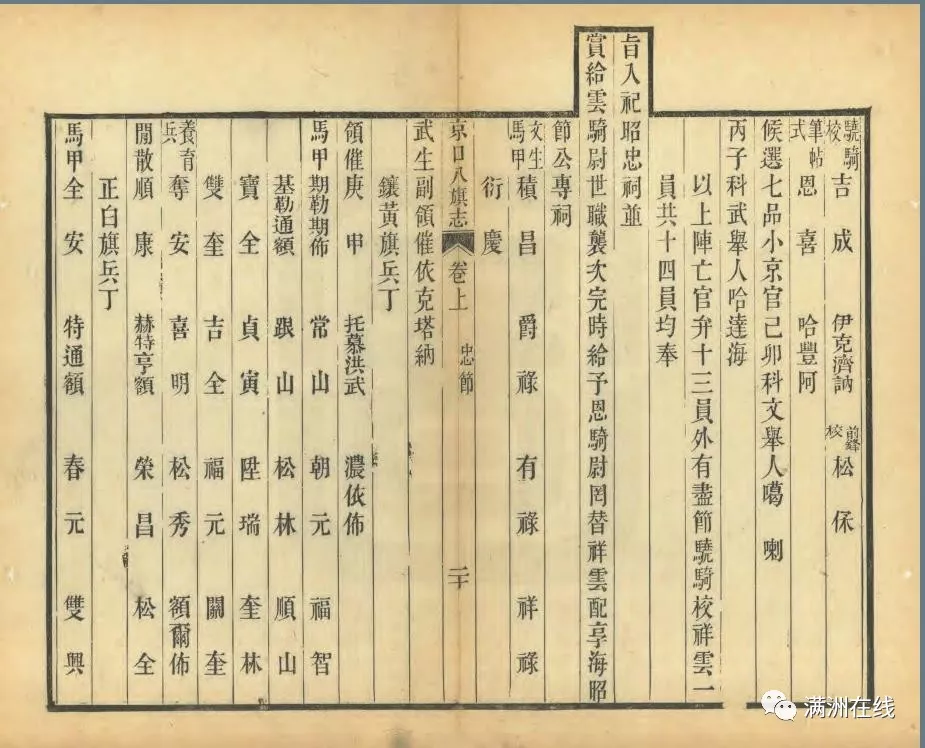 驍騎校吉成 伊克濟訥 前鋒校松保
筆帖式恩喜 哈豐阿
候選七品小京官己卯科文舉人噶喇
丙子科武舉人哈達海
以上陣亡官弁十三員外有盡節驍騎校祥雲一
員共十四員均奉
旨入祀昭忠祠並
賞給雲騎尉世職襲次完時給予恩騎尉罔替祥雲配享海昭
節公專祠
文生馬甲積昌 爵祿 有祿 祥祿
衍慶
京口八旗志 卷上 忠節 二十
武生副領催依克塔納
鑲黃旗兵丁
領催庚甲 托慕洪武 濃依佈
馬甲期勒期佈 常山 朝元 福智
基勒通額 跟山 松林 順山
寶全 貞寅 陞瑞 奎林
雙奎 吉全 福元 關奎
養育兵奪安 喜明 松秀 額爾佈
閒散順康 赫特亨額 榮昌 松全
正白旗兵丁
馬甲全安 特通額 春元 雙興
满洲在线